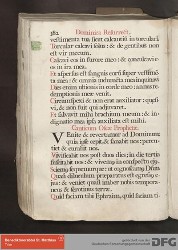 382. Dominica Resurrect.
vestimenta tua sicut calcantiũ in torculari
Torcular calcavi solus: & de gentibus non
est vir mecum.
Calcavi eos in furore meo: & conculcavi e-
os in ira mea.
Et aspersus est sanguis eorũ super vestimẽ-
ta mea: & omnia indumẽta mea inquinavi
Dies enim ultionis in corde meo: annus re-
demptionis meæ venit.
Circumspexi & non erat auxiliator: quæsi-
vi, & non fuit qui adjuvaret.
Et salvavit mihi brachium meum: & in-
dignatio mea ipsa auxiliata est mihi.
Canticum Osee Prophetæ.
Venite & revertamur ad Dominum:
quia ipse cepit, & sanabit nos: percu-
tiet & curabit nos.
Vivificabit nos post duos dies: in die tertia
suscitabit nos & vivemus in conspectu ejus
Sciemus sequemurque: ut cognoscamus Dñum
Quasi diluculum præparatus est egressus e-
jus: & veniet quasi imber nobis tempora-
neus & serotinus terræ.
Quid faciam tibi Ephraim, quid faciam ti-
DFG